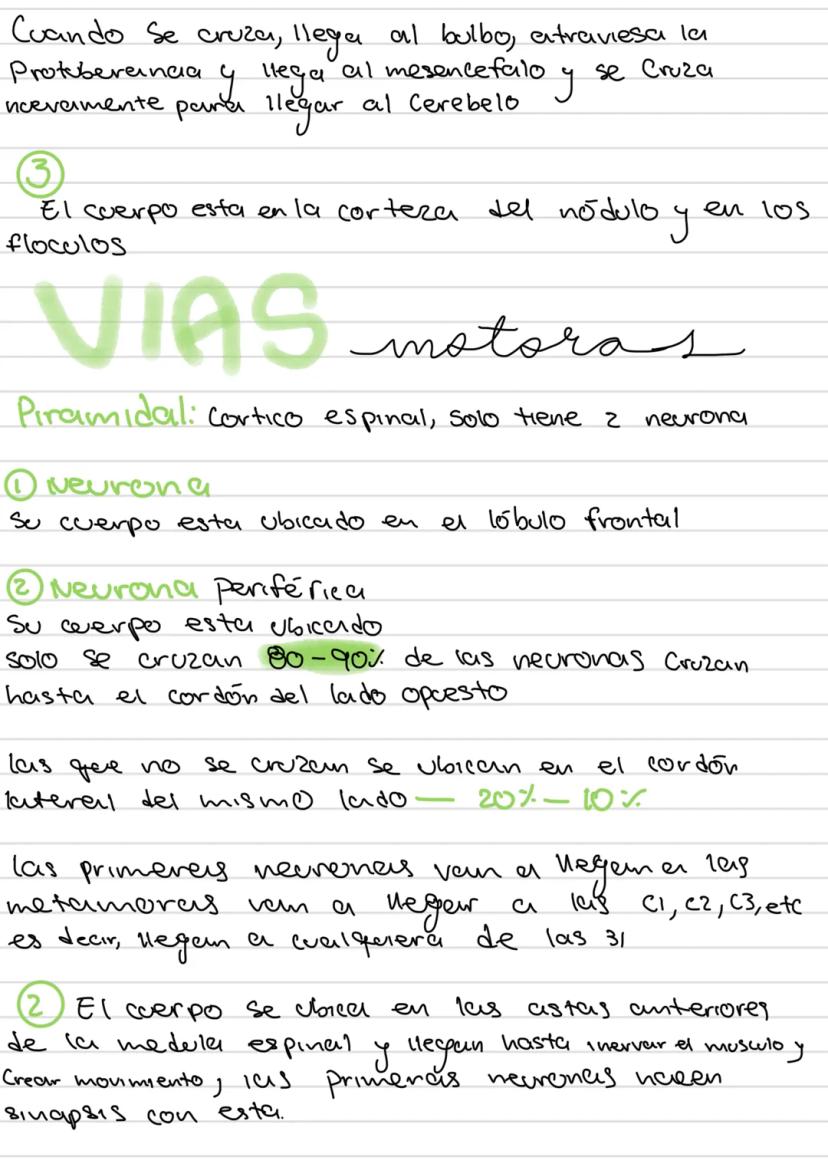 Cuando Se cruza, llega al bulbo, atraviesa la
Protuberancia y llega al mesencefalo y se Cruza
nuevamente para llegar al Cerebelo
③
El cuerpo esta en la corteza del nódulo y en los
floculos
VIAS motoras
Piramidal: Cortico espinal, solo tiene 2 neurona
① Neurona
Su cuerpo esta ubicado en el lóbulo frontal
② Neurona Periférica
Su cuerpo esta ubicado
solo se cruzan 80-90% de las neuronas Cruzan
hasta el cordón del lado opuesto
las que no se cruzan se ubican en el cordón
lateral del mismo lado — 20% — 10%
las primeras neuronas van a llegan a las
metameras van a llegar a las C1, C2, C3, etc
es decir, llegan a cualquiera de las 31
② El cuerpo se ubica en las astas anteriores
de la medula espinal y llegan hasta inervar el musculo y
Crear movimiento, las primeras neuronas hacen
sinapsis con esta.